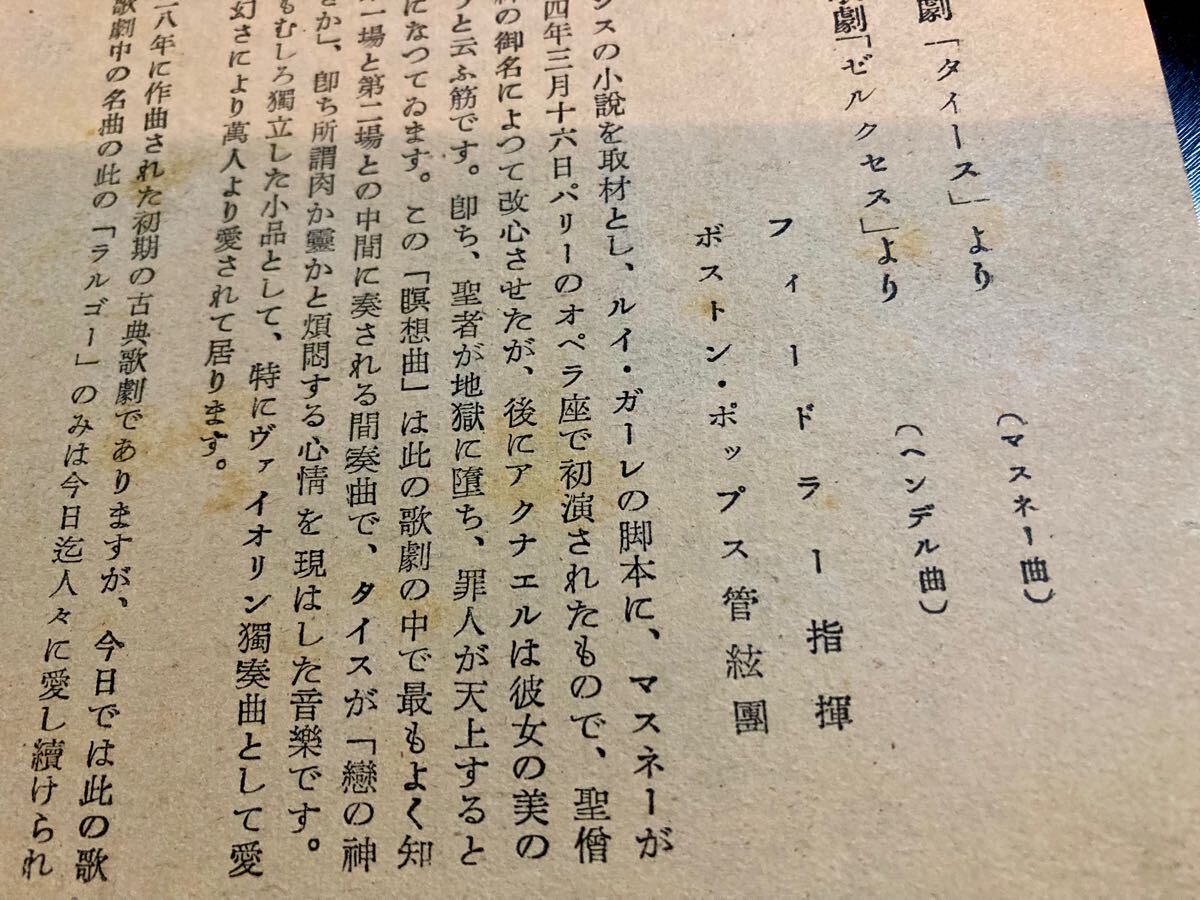 劇「タイース」より
(マスネー曲)
劇「ゼルクセス」より
(ヘンデル曲)
フィードラー指揮
ボストン・ポップス管絃團
ンスの小說を取材とし、ルイ・ガーレの脚本に、マスネーが
四年三月十六日パリーのオペラ座で初演されたもので、聖僧
の御名によつて改心させたが、後にアクナエルは彼女の美の
と云ふ筋です。卽ち、聖者が地獄に墮ち、罪人が天上すると
になつてゐます。この「瞑想曲」は此の歌劇の中で最もよく知
一場と第二場との中間に奏される間奏曲で、タイスが「戀の神
か」、卽ち所謂肉か靈かと煩悶する心情を現はした音樂です。
もむしろ獨立した小品として、特にヴァイオリン獨奏曲として愛
幻さにより萬人より愛されて居ります。
二八年に作曲された初期の古典歌劇でありますが、今日では此の歌
歌劇中の名曲の此の「ラルゴー」のみは今日迄人々に愛し續けられ